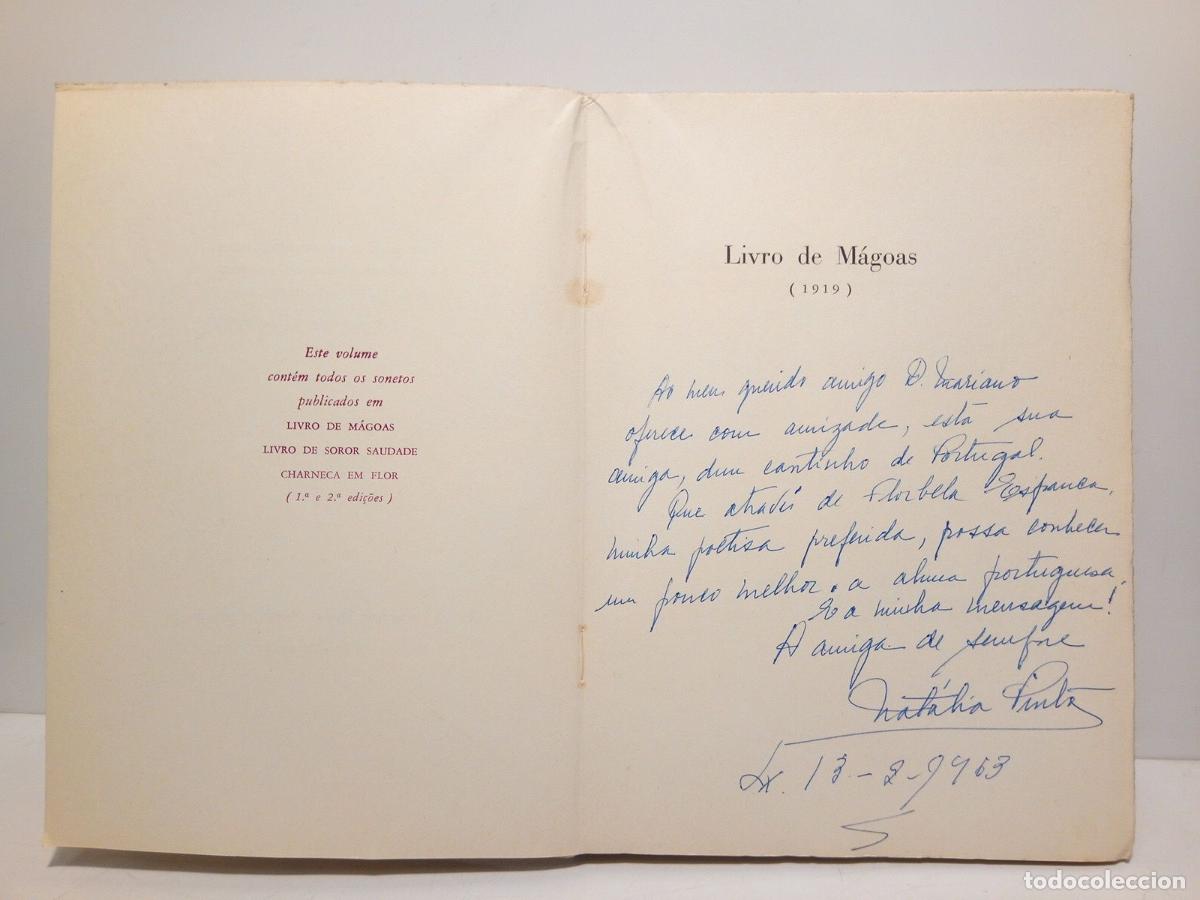 Este volume
contém todos os sonetos
publicados em
LIVRO DE MÁGOAS
LIVRO DE SOROR SAUDADE
CHARNECA EM FLOR
( 1.ª e 2.ª edições )
Livro de Mágoas
( 1919 )
Ao meu querido amigo D. Mariano
oferece com amizade, esta sua
amiga, dum cantinho de Portugal.
Que através de Florbela Espanca,
minha poetisa preferida, possa conhecer
um pouco melhor a alma portuguesa.
E a minha mensagem!
A amiga de sempre
Natália Pinto
Lx. 13-2-963
todocoleccion